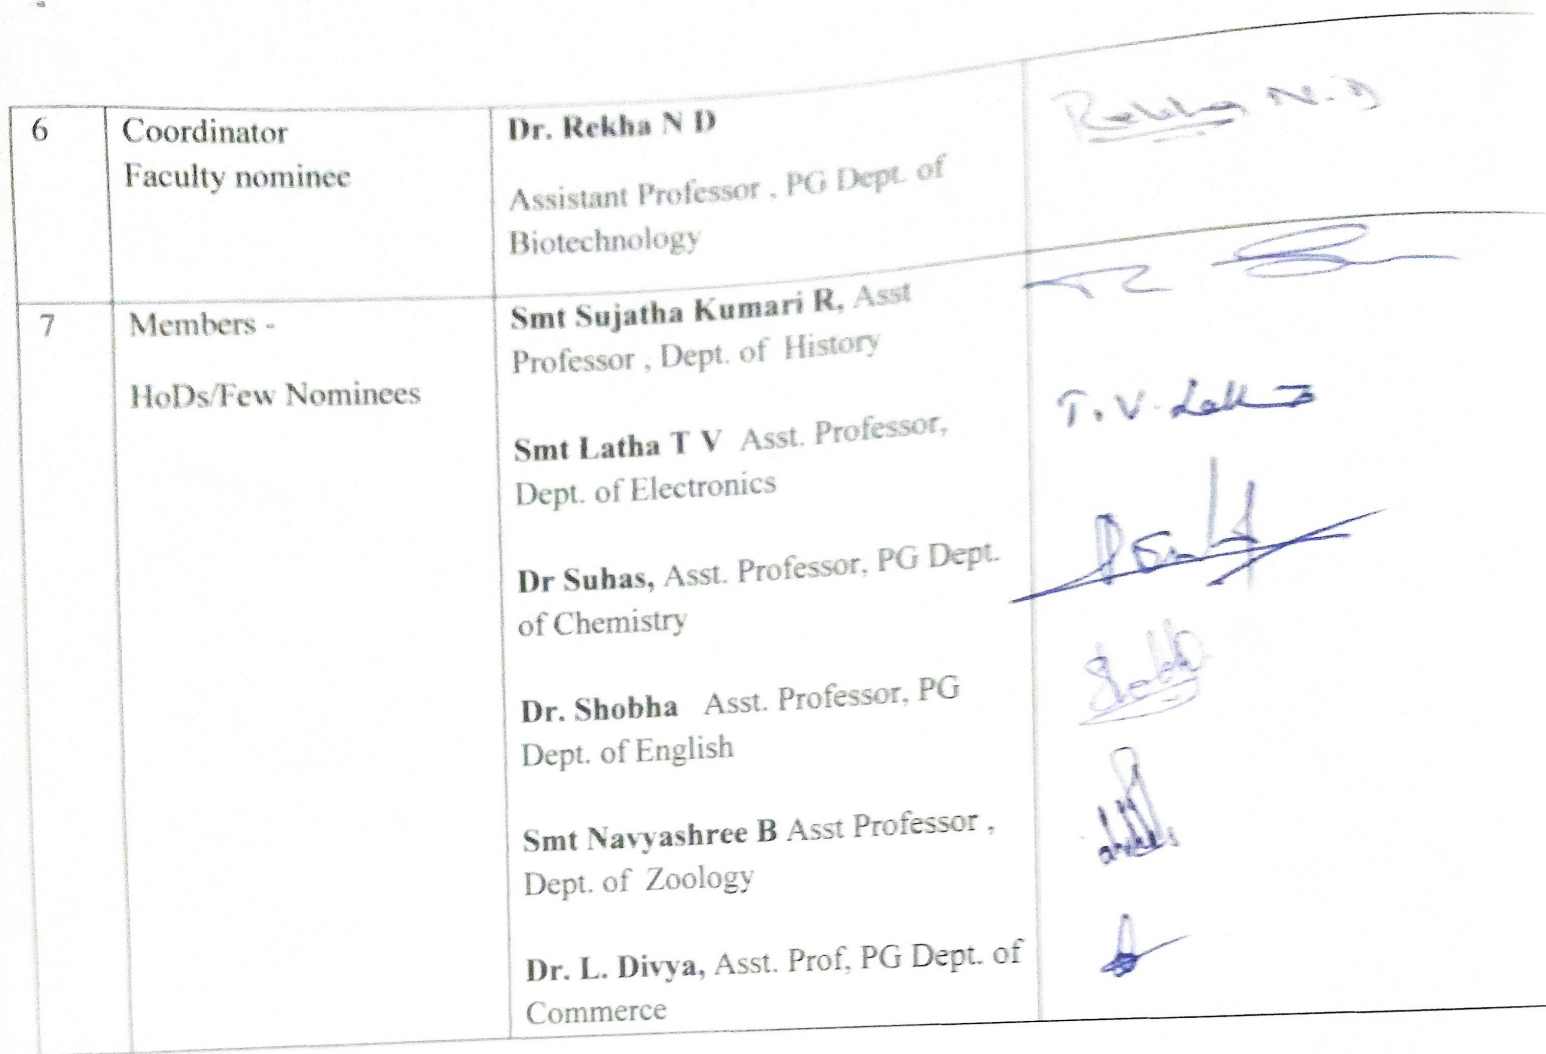 6
Coordinator
Faculty nominee
Dr. Rekha N D
Assistant Professor , PG Dept. of
Biotechnology
Rekha N.D
7
Members -
HoDs/Few Nominees
Smt Sujatha Kumari R, Asst
Professor , Dept. of History
Smt Latha T V Asst. Professor,
Dept. of Electronics
T.V. Latha
Dr Suhas, Asst. Professor, PG Dept.
of Chemistry
Dr. Shobha Asst. Professor, PG
Dept. of English
Shobha
Smt Navyashree B Asst Professor ,
Dept. of Zoology
Dr. L. Divya, Asst. Prof, PG Dept. of
Commerce